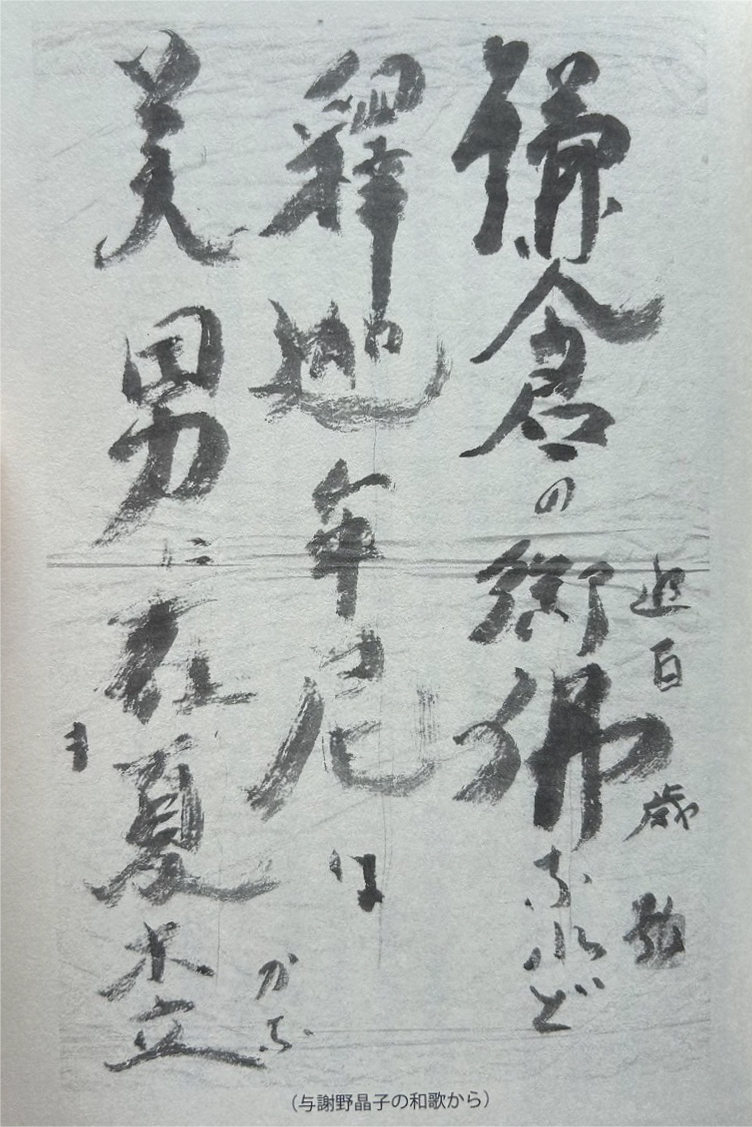 百歳
鎌倉の御佛なれど
釋迦牟尼は
美男に在夏木立
ま
かな
(与謝野晶子の和歌から)